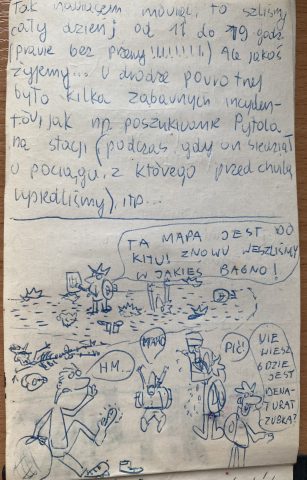 Tak nawiasem mówiąc, to szliśmy
cały dzień od 11 do 19 godz
(prawie bez przerwy!!!!!!!) Ale jakoś
żyjemy... W drodze powrotnej
było kilka zabawnych incyden-
tów jak np. poszukiwanie Pytola
na stacji (podczas gdy on siedział
w pociągu, z którego przed chwilą
wysiedliśmy), itp...
TA MAPA JEST DO
KITU! ZNOWU WESZLIŚMY
W JAKIEŚ BAGNO!
HM...
MAMO
PIĆ!
NIE
WIESZ
GDZIE
JEST
DENA-
TURAT
ZUBKA?